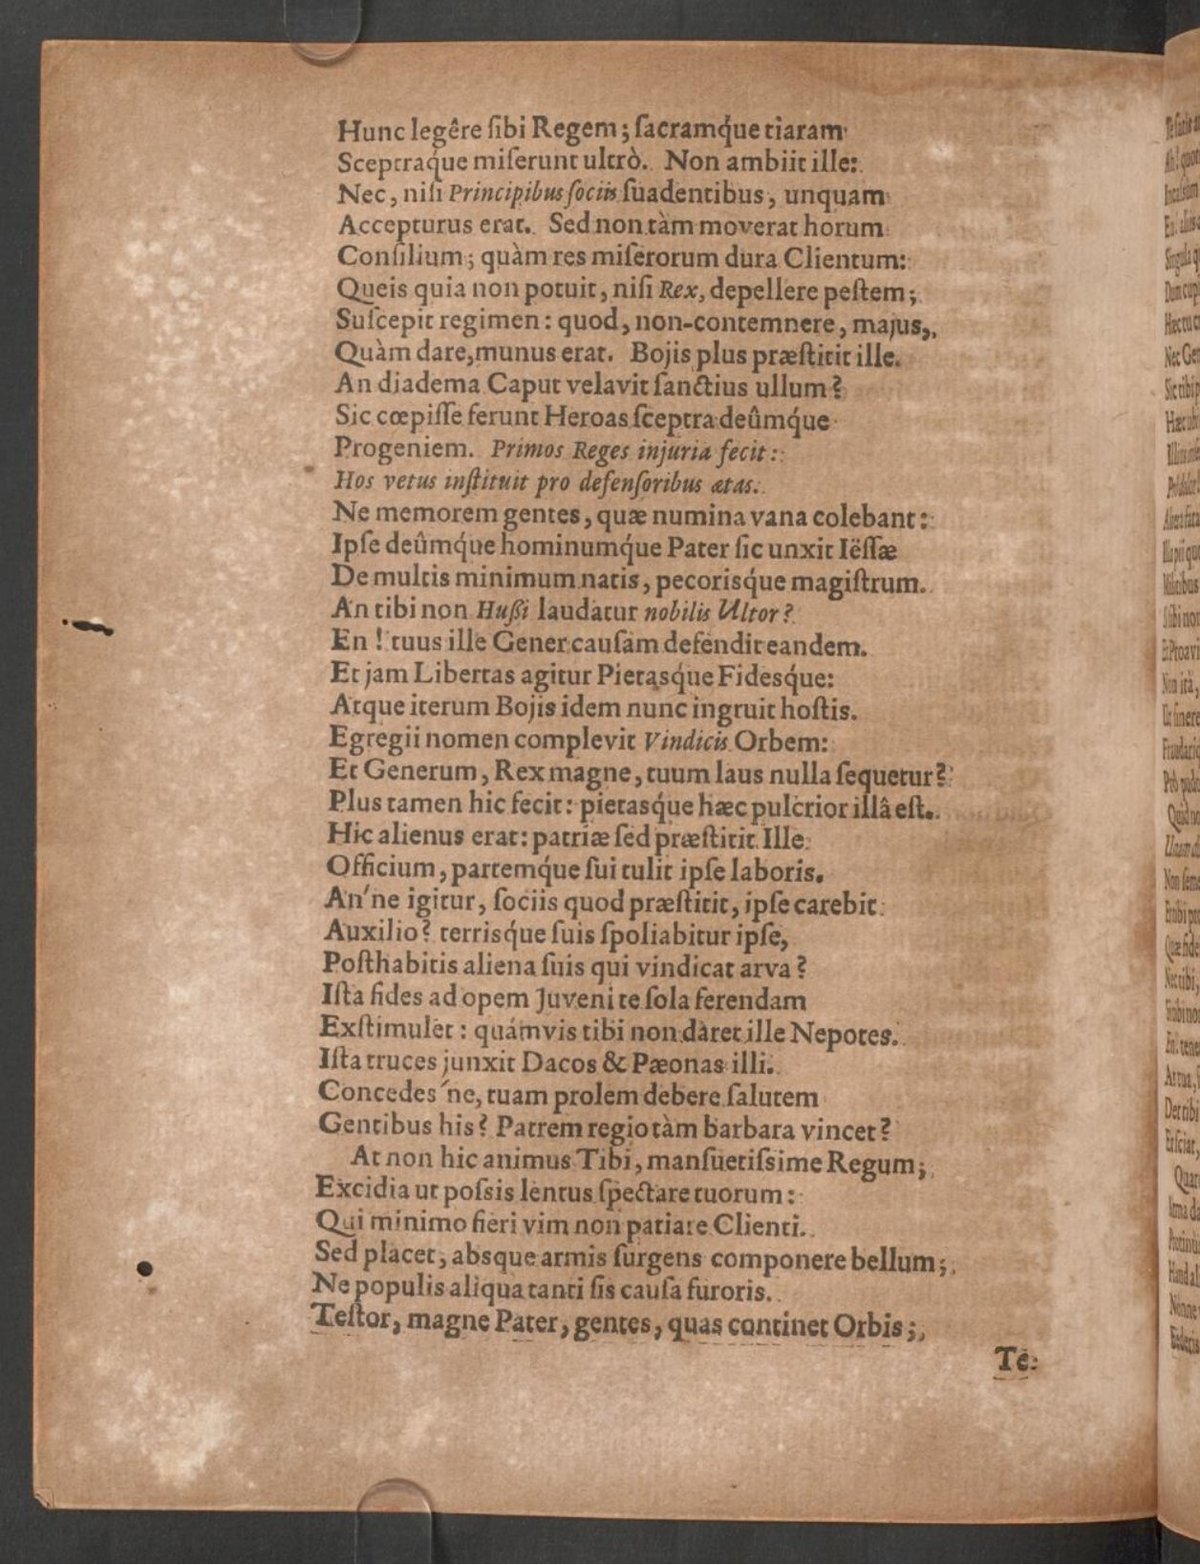 Hunc legêre ſibi Regem; ſacramq́ue tiaram
Sceptraq́ue miſerunt ultrò. Non ambiit ille:
Nec, niſi Principibus ſociis ſuadentibus, unquam
Accepturus erat. Sed non tàm moverat horum
Conſilium; quàm res miſerorum dura Clientum:
Queis quia non potuit, niſi Rex, depellere peſtem;
Suſcepit regimen: quod, non-contemnere, majus,
Quàm dare, munus erat. Bojis plus præſtitit ille.
An diadema Caput velavit ſanctius ullum?
Sic cœpiſſe ferunt Heroas ſceptra deûmq́ue
Progeniem. Primos Reges injuria fecit:
Hos vetus inſtituit pro defenſoribus ætas.
Ne memorem gentes, quæ numina vana colebant:
Ipſe deûmq́ue hominumq́ue Pater ſic unxit Iëſſæ
De multis minimum natis, pecorisq́ue magiſtrum.
An tibi non Hußi laudatur nobilis Ultor?
En! tuus ille Gener cauſam defendit eandem.
Et jam Libertas agitur Pietasq́ue Fidesq́ue:
Atque iterum Bojis idem nunc ingruit hoſtis.
Egregii nomen complevit Vindicis Orbem:
Et Generum, Rex magne, tuum laus nulla ſequetur?
Plus tamen hic fecit: pietasq́ue hæc pulcrior illâ eſt.
Hic alienus erat: patriæ ſed præſtitit Ille
Officium, partemq́ue ſui tulit ipſe laboris.
An'ne igitur, ſociis quod præſtitit, ipſe carebit
Auxilio? terrisq́ue ſuis ſpoliabitur ipſe,
Poſthabitis aliena ſuis qui vindicat arva?
Iſta fides ad opem Juveni te ſola ferendam
Exſtimulet: quámvis tibi non daret ille Nepotes.
Iſta truces junxit Dacos & Pæonas illi.
Concedes'ne, tuam prolem debere ſalutem
Gentibus his? Patrem regio tàm barbara vincet?
At non hic animus Tibi, manſuetiſsime Regum;
Excidia ut poſsis lentus ſpectare tuorum:
Qui minimo fieri vim non patiare Clienti.
Sed placet, absque armis ſurgens componere bellum;
Ne populis aliqua tanti ſis cauſa furoris.
Teſtor, magne Pater, gentes, quas continet Orbis;
Te